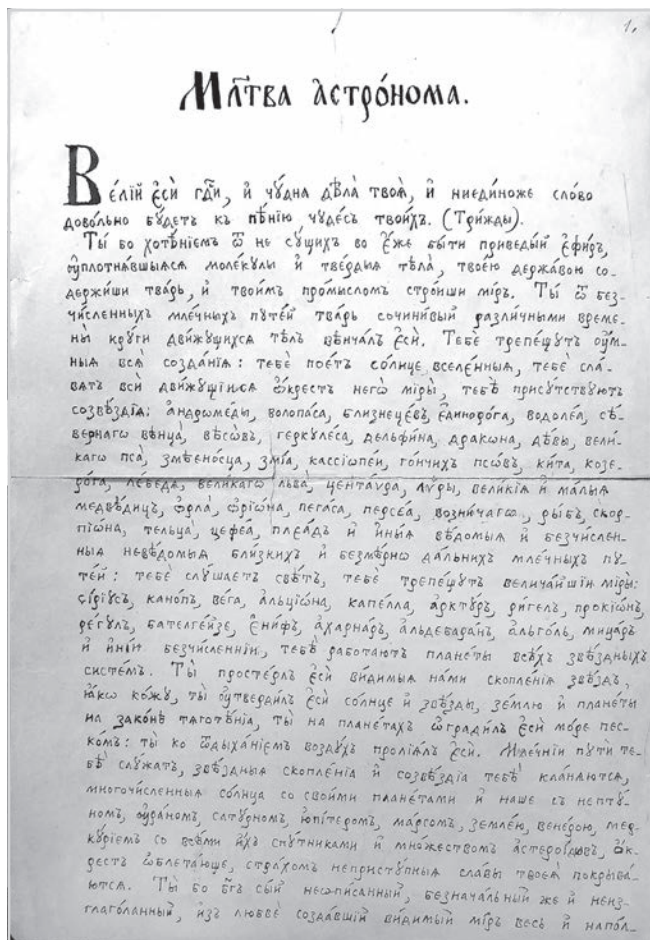 1.
Мл҃тва а҆стро́нома.
Ве́лїй є҆сѝ гдⷭ҇и, и҆ чꙋ́дна дѣла̀ твоѧ̑, и҆ ниеди́ноже сло́во
дово́льно бꙋ́детъ къ пѣ́нїю чꙋде́съ твои́хъ. (Три́жды).
Ты́ бо хотѣ́нїемъ ѿ не сꙋ́щихъ во є҆́же бы́ти приведы́й є҆фи́ръ,
ᲂу҆плотнѧ́вшыѧсѧ моле́кꙋлы и҆ твє́рдыѧ тѣла̀, твое́ю держа́вою со-
держи́ши тва́рь, и҆ твои́мъ про́мысломъ стро́иши мі́ръ. Ты̀ ѿ без-
чи́сленныхъ мле́чныхъ пꙋте́й тва́рь сочини́вый разли́чными време-
ны̀ крꙋгѝ дви́жꙋщихсѧ тѣ́лъ вѣнча́лъ є҆сѝ. Тебѐ трепе́щꙋтъ ᲂу҆́м-
ныѧ всѧ̑ созда̑нїѧ: тебѐ пое́тъ со́лнце вселе́нныѧ, тебѐ сла́-
вѧтъ всѝ дви́жꙋщїисѧ ѡ҆́крестъ негѡ̀ мі́ры, тебѣ̀ присꙋ́тствꙋютъ
созвѣ̑здїѧ: а҆ндроме́ды, волопа́са, близнецє́въ, є҆диноро́га, водоле́а, сѣ́-
вернагѡ вѣнца̀, вѣсѡ́въ, геркꙋле́са, дельфи́на, драко́на, дѣ́вы, вели́-
кагѡ пса̀, змѣено́сца, змі́а, кассїѡпе́и, го́нчихъ псѡ́въ, ки́та, козе-
ро́га, ле́бедѧ, вели́кагѡ льва̀, цента́ѵра, лѵ́ры, вели́кїѧ и҆ ма́лыѧ
медвѣ́дицъ, ѻ҆рла̀, ѻ҆рїѡ́на, пега́са, персе́а, возни́чагѡ, ры́бъ, скор-
пїѡ́на, тельца̀, цефе́а, плеѧ́дъ и҆ и҆ны̑ѧ вѣ́домыѧ и҆ безчи́слен-
ныѧ невѣ́домыѧ бли́зкихъ и҆ безмѣ́рнѡ да́льнихъ мле́чныхъ пꙋ-
те́й: тебѐ слꙋ́шаетъ свѣ́тъ, тебѐ трепе́щꙋтъ велича́йшїи мі́ры:
сі́рїꙋсъ, кано́пъ, ве́га, а҆льцїѡ́на, капе́лла, а҆рктꙋ́ръ, ри́гелъ, прокїѡ́нъ,
ре́гꙋлъ, бателге́йзе, є҆ни́фъ, а҆харна́ръ, а҆льдебара́нъ, а҆льго́ль, мица́ръ
и҆ и҆ні́и безчи́сленнїи, тебѣ̀ рабо́таютъ плане́ты всѣ́хъ звѣ́здныхъ
систе́мъ. Ты̀ просте́рлъ є҆сѝ ви́димыѧ на́ми скоплє́нїѧ звѣ́здъ,
ꙗ҆́кѡ ко́жꙋ, ты̀ ᲂу҆тверди́лъ є҆сѝ со́лнце и҆ звѣ́зды, зе́млю и҆ плане́ты
на зако́нѣ тѧготѣ́нїѧ, ты̀ на плане́тахъ ѡ҆гради́лъ є҆сѝ мо́ре пес-
ко́мъ: ты̀ ко ѿдыха́нїемъ во́здꙋхъ пролїѧ́лъ є҆сѝ. Мле́чнїи пꙋтѝ те-
бѣ̀ слꙋ́жатъ, звѣ́здныѧ скоплє́нїѧ и҆ созвѣ̑здїѧ тебѣ̀ кла́нѧютсѧ,
многочи́сленныѧ со́лнца со свои́ми плане́тами и҆ на́ше съ непт

ꙋ́-
номъ, ᲂу҆ра́номъ, сатꙋ́рномъ, ю҆пи́теромъ, ма́рсомъ, земле́ю, вене́рою, мер-
кꙋ́рїемъ со всѣ́ми и҆́хъ спꙋ́тниками и҆ мно́жествомъ а҆стеро́идѡвъ, ѡ҆́к-
рестъ ѡ҆блета́юще, стра́хомъ непристꙋ́пныѧ сла́вы твоеѧ̀ покрыва́-
ютсѧ. Ты́ бо бг҃ъ сы́й неѡпи́санный, безнача́льный же и҆ неиз-
глаго́ланный, и҆зъ любвѐ созда́вшїй ви́димый мі́ръ ве́сь и҆ напо́л-